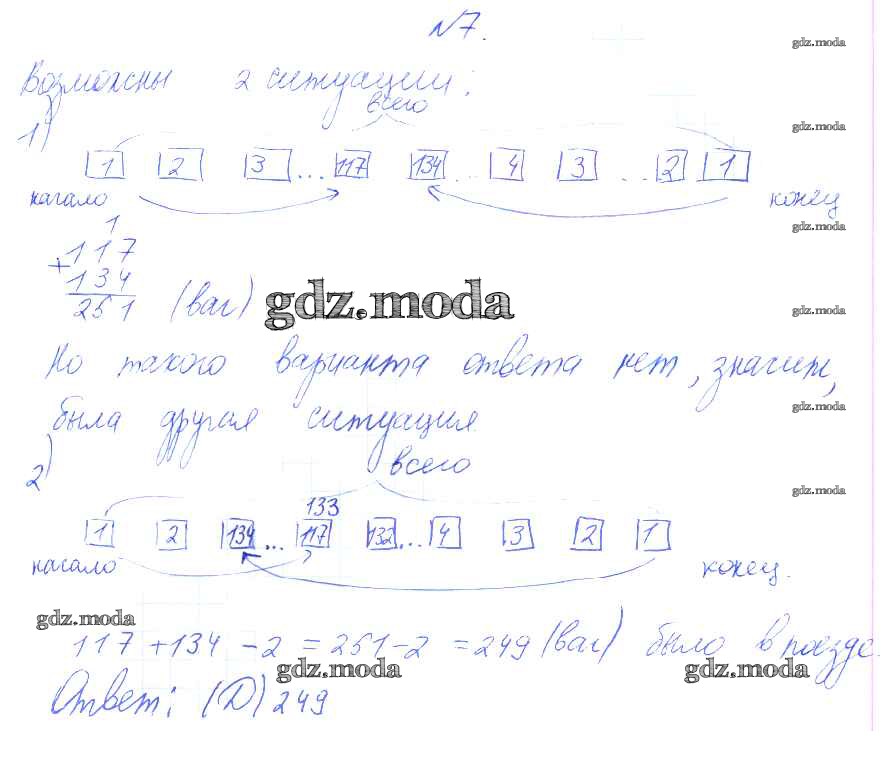 №7.
gdz.moda
Возможны 2 ситуации:
всего
gdz.moda
1)
1 2 3 ... 117 134 ... 4 3 ... 2 1
начало конец
gdz.moda
1
117
+
134
251 (ваг) gdz.moda
gdz.moda
Но такого варианта ответа нет, значит,
gdz.moda
была другая ситуация
2) всего
gdz.moda
133
1 2 134 ... 117 132 ... 4 3 2 1
начало конец.
gdz.moda
117 + 134 - 2 = 251 - 2 = 249 (ваг) было в поезде.
gdz.moda gdz.moda
Ответ: (D) 249